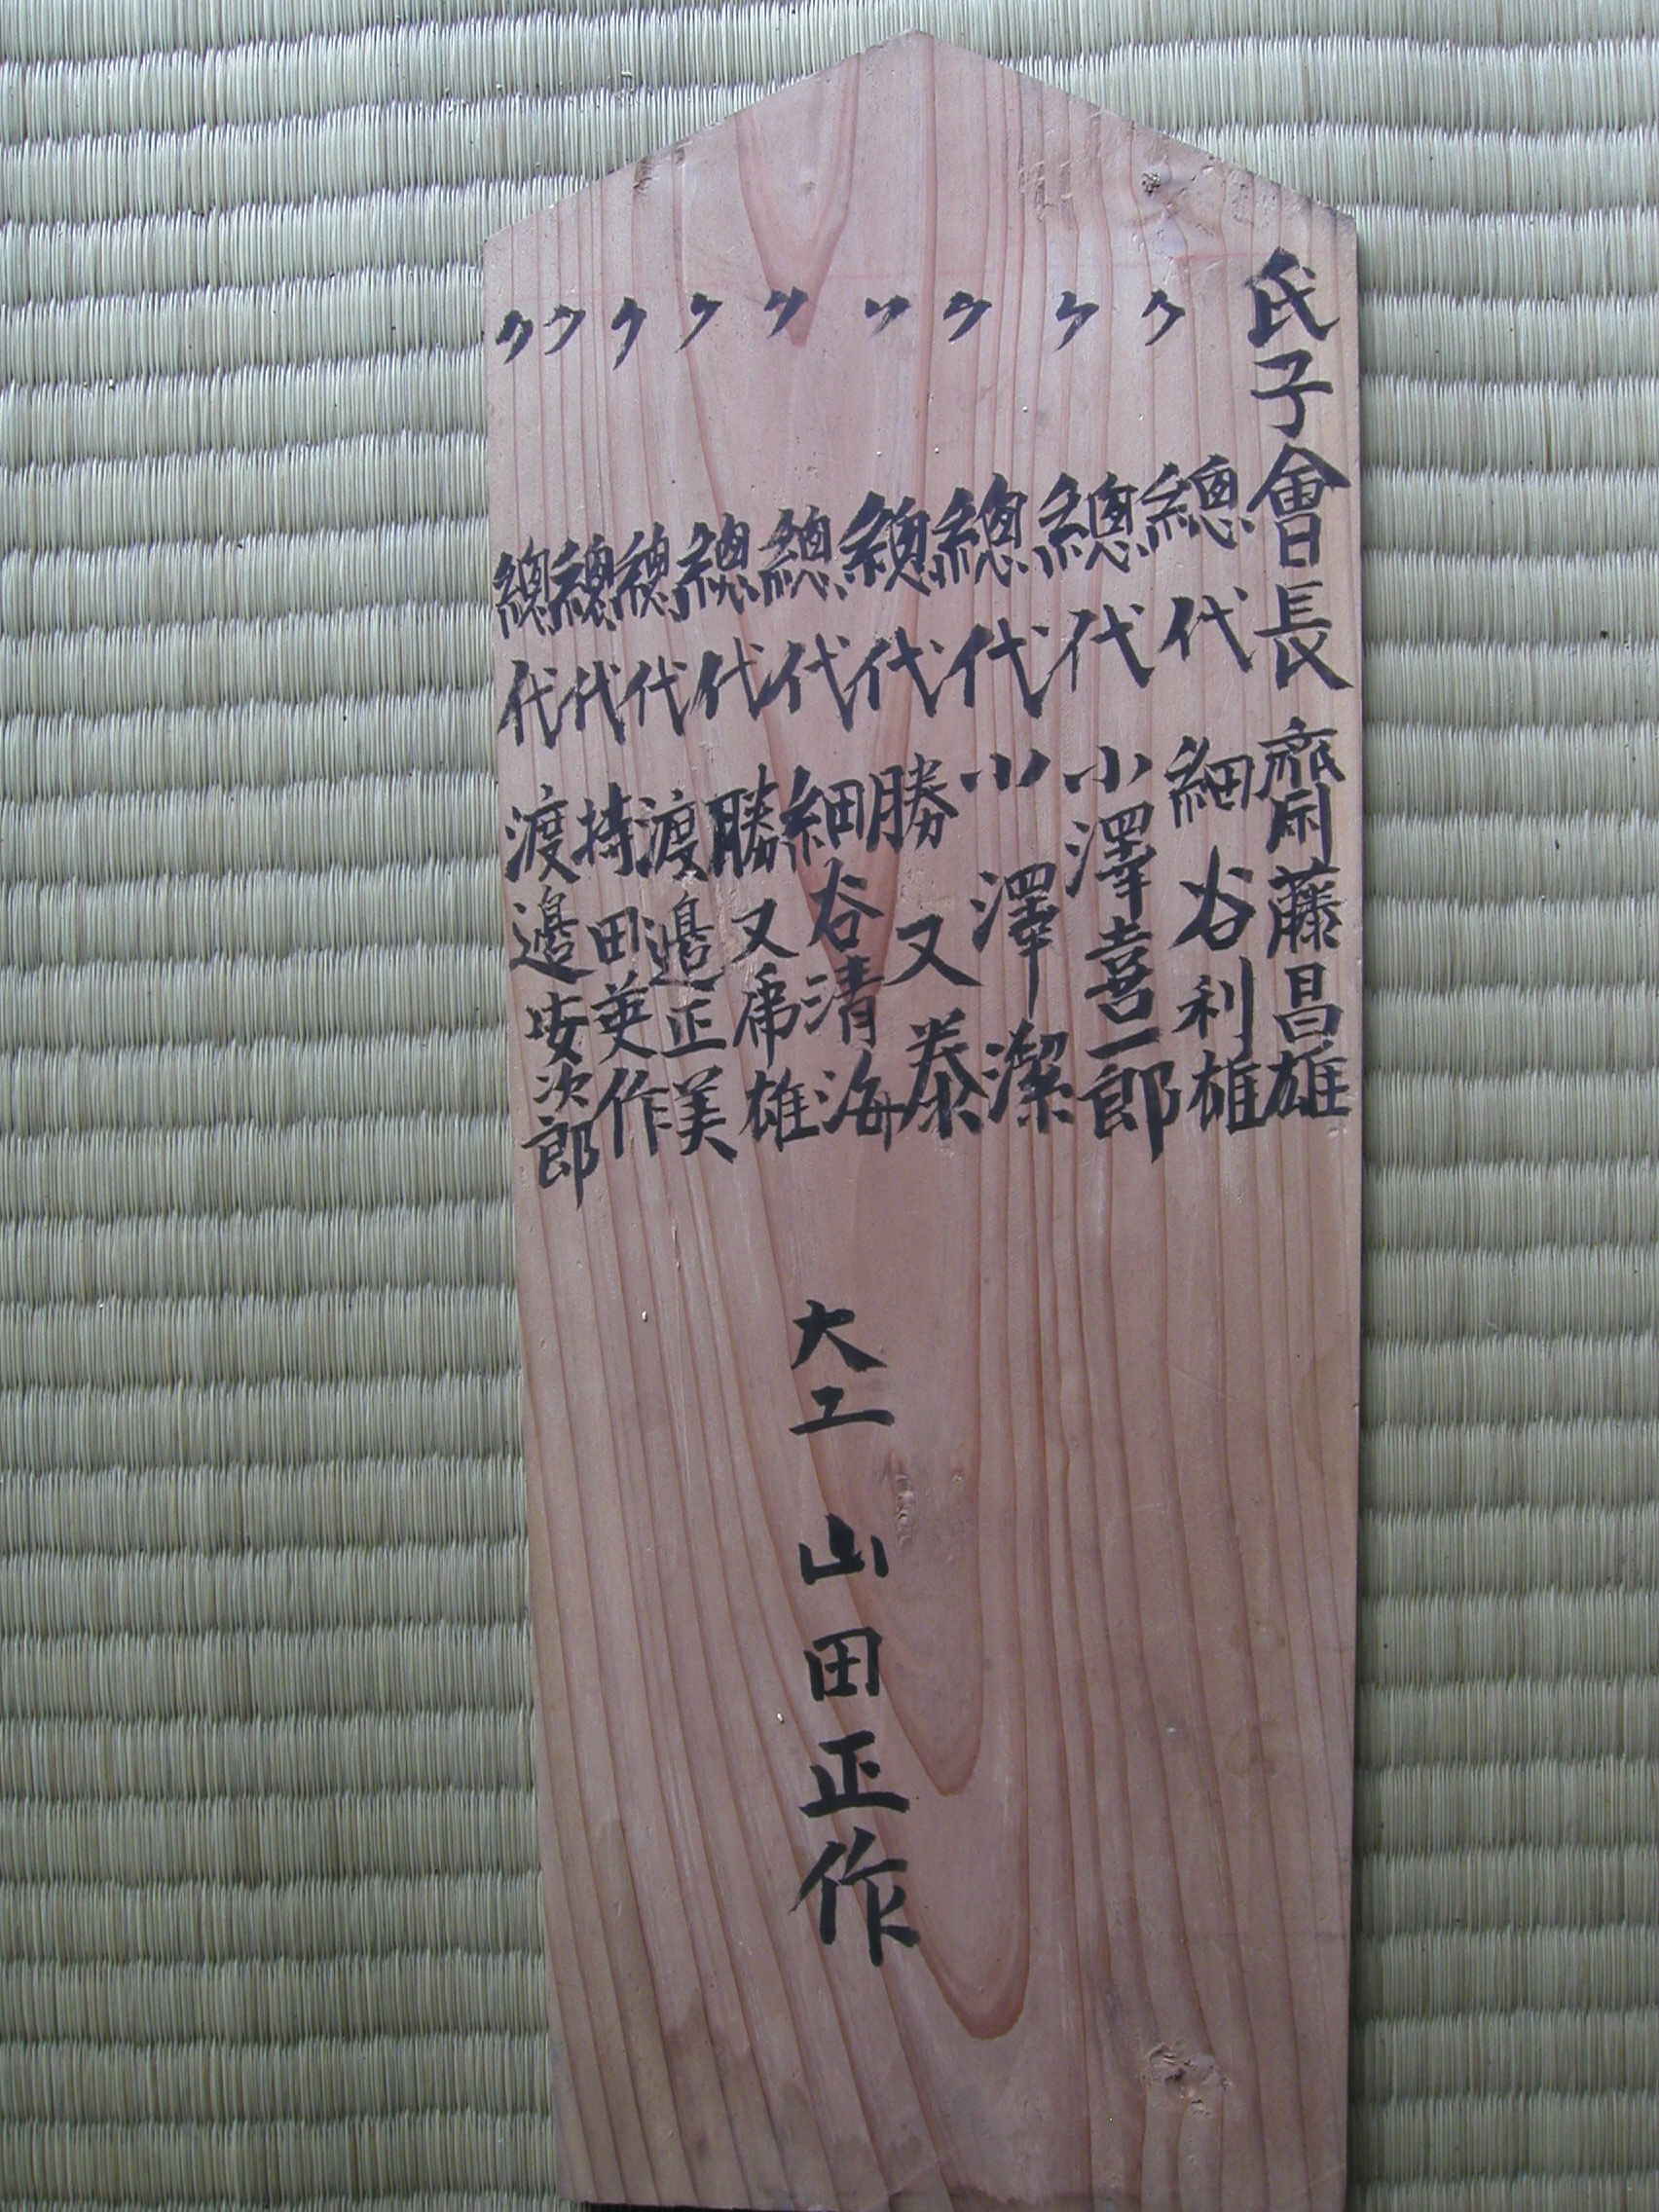 氏子會長 齋藤昌雄
〃 總代 細谷利雄
〃 總代 小澤喜一郎
〃 總代 小澤 潔
〃 總代 勝又 泰
〃 總代 細谷清海
〃 總代 勝又 雄
〃 總代 渡邉正美
〃 總代 持田英作
〃 總代 渡邉安次郎
大工 山田正作